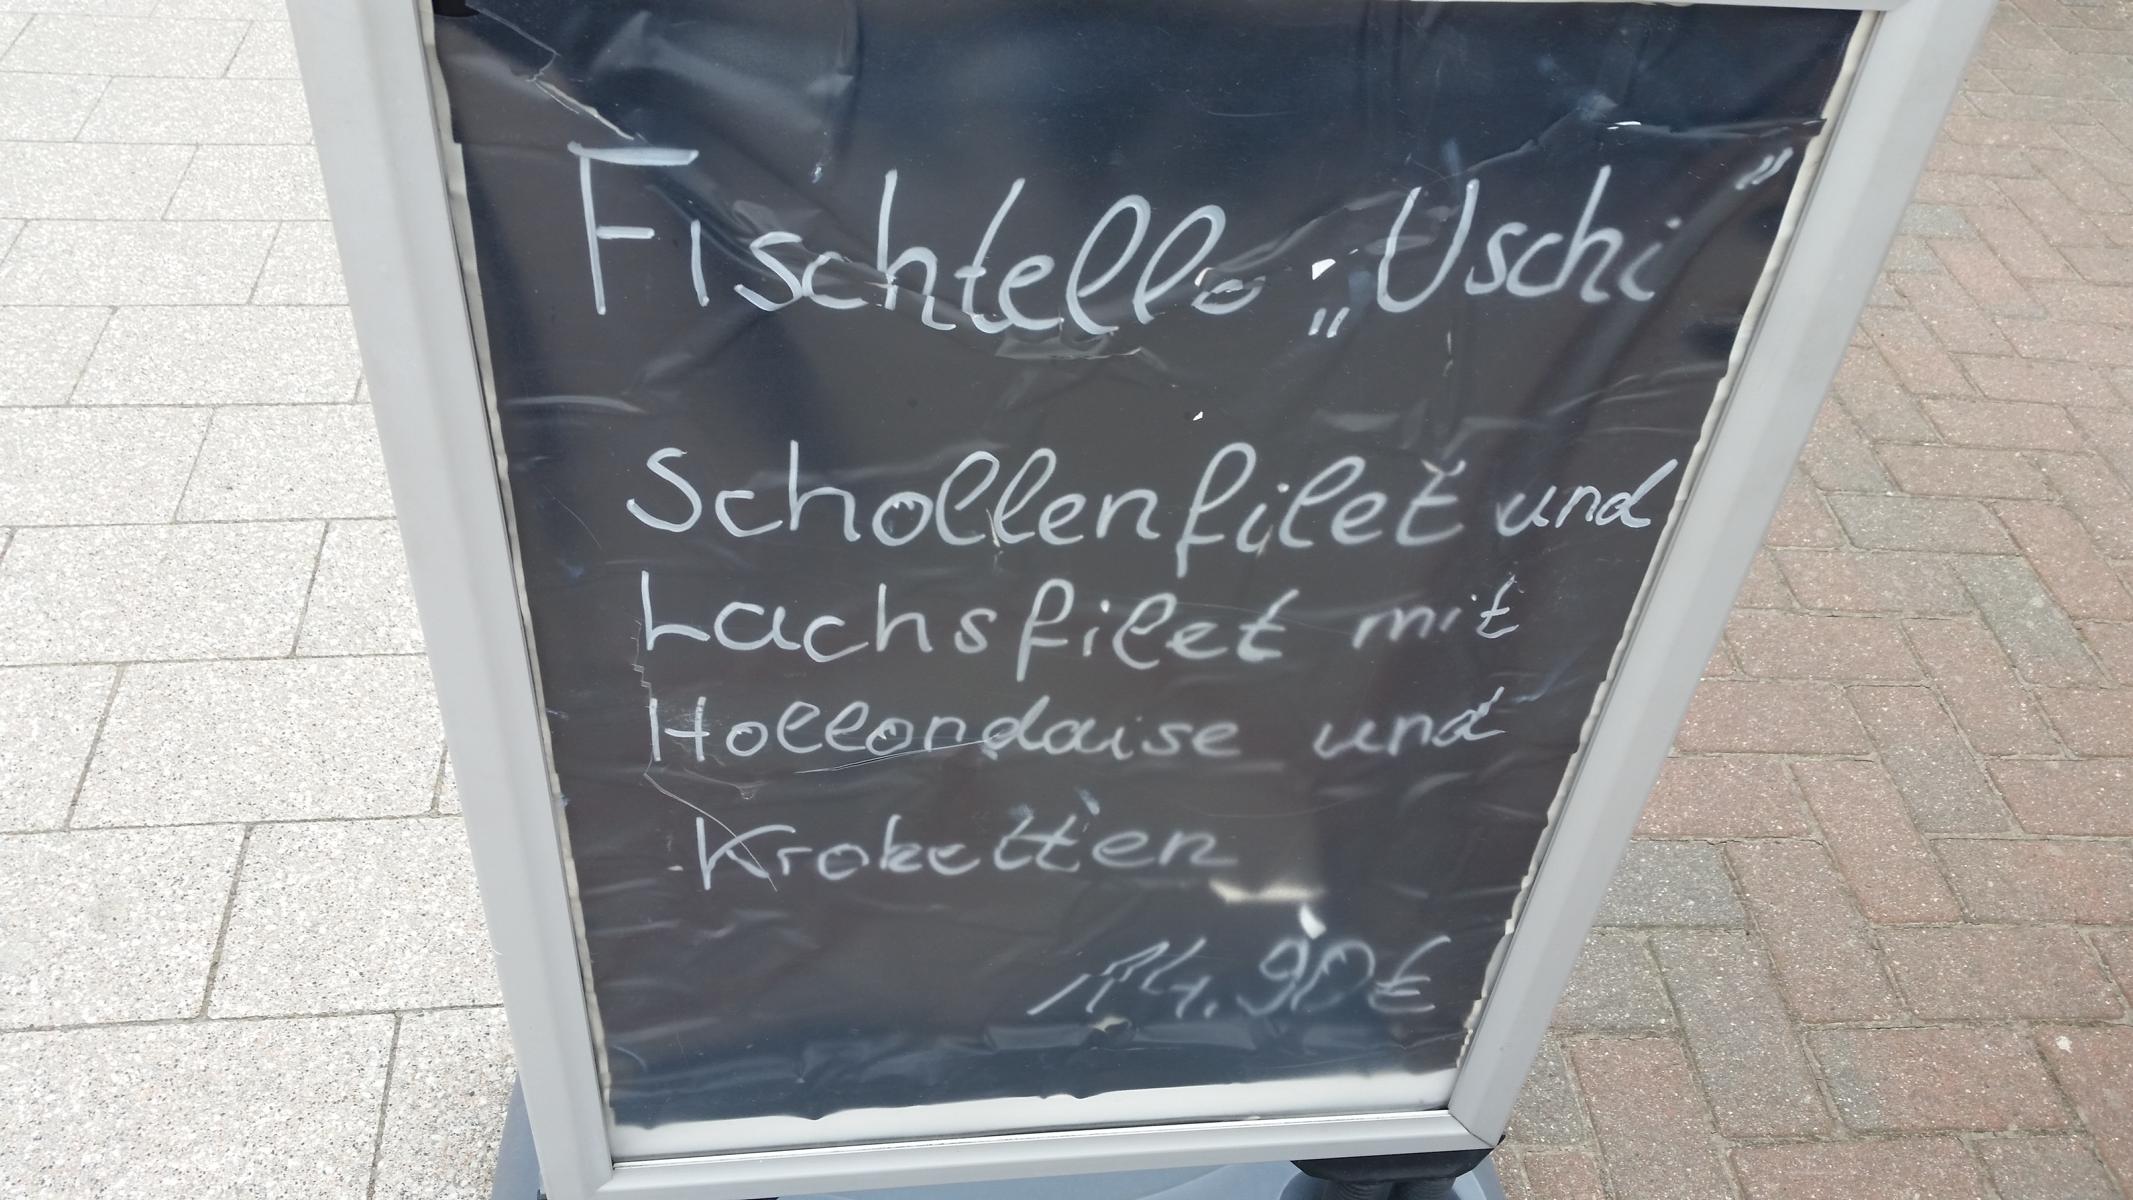 Fischtello „Uschi"
Schollenfilet und
Lachsfilet mit
Hollondaise und
Kroketten
14,90€